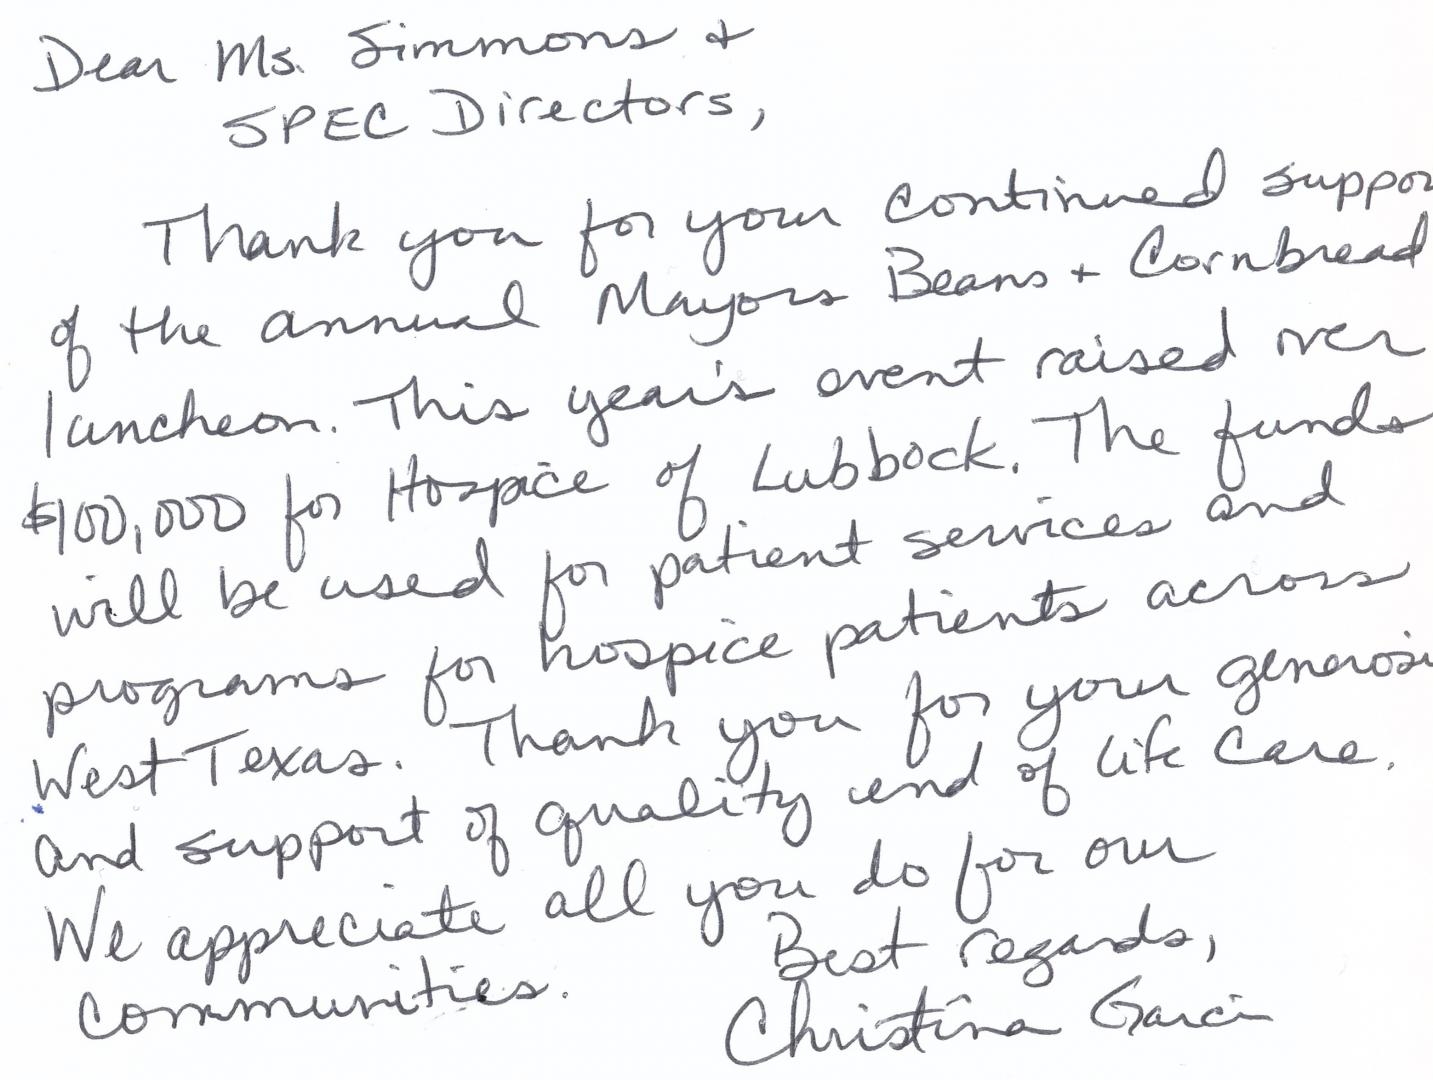 Dear Ms. Simmons +
SPEC Directors,
Thank you for your continued suppor
of the annual Mayors Beans + Cornbread
luncheon. This year's event raised over
$100,000 for Hospice of Lubbock. The funds
will be used for patient services and
programs for hospice patients across
West Texas. Thank you for your generosi
and support of quality end of life care.
We appreciate all you do for our
communities.
Best regards,
Christina Garcia